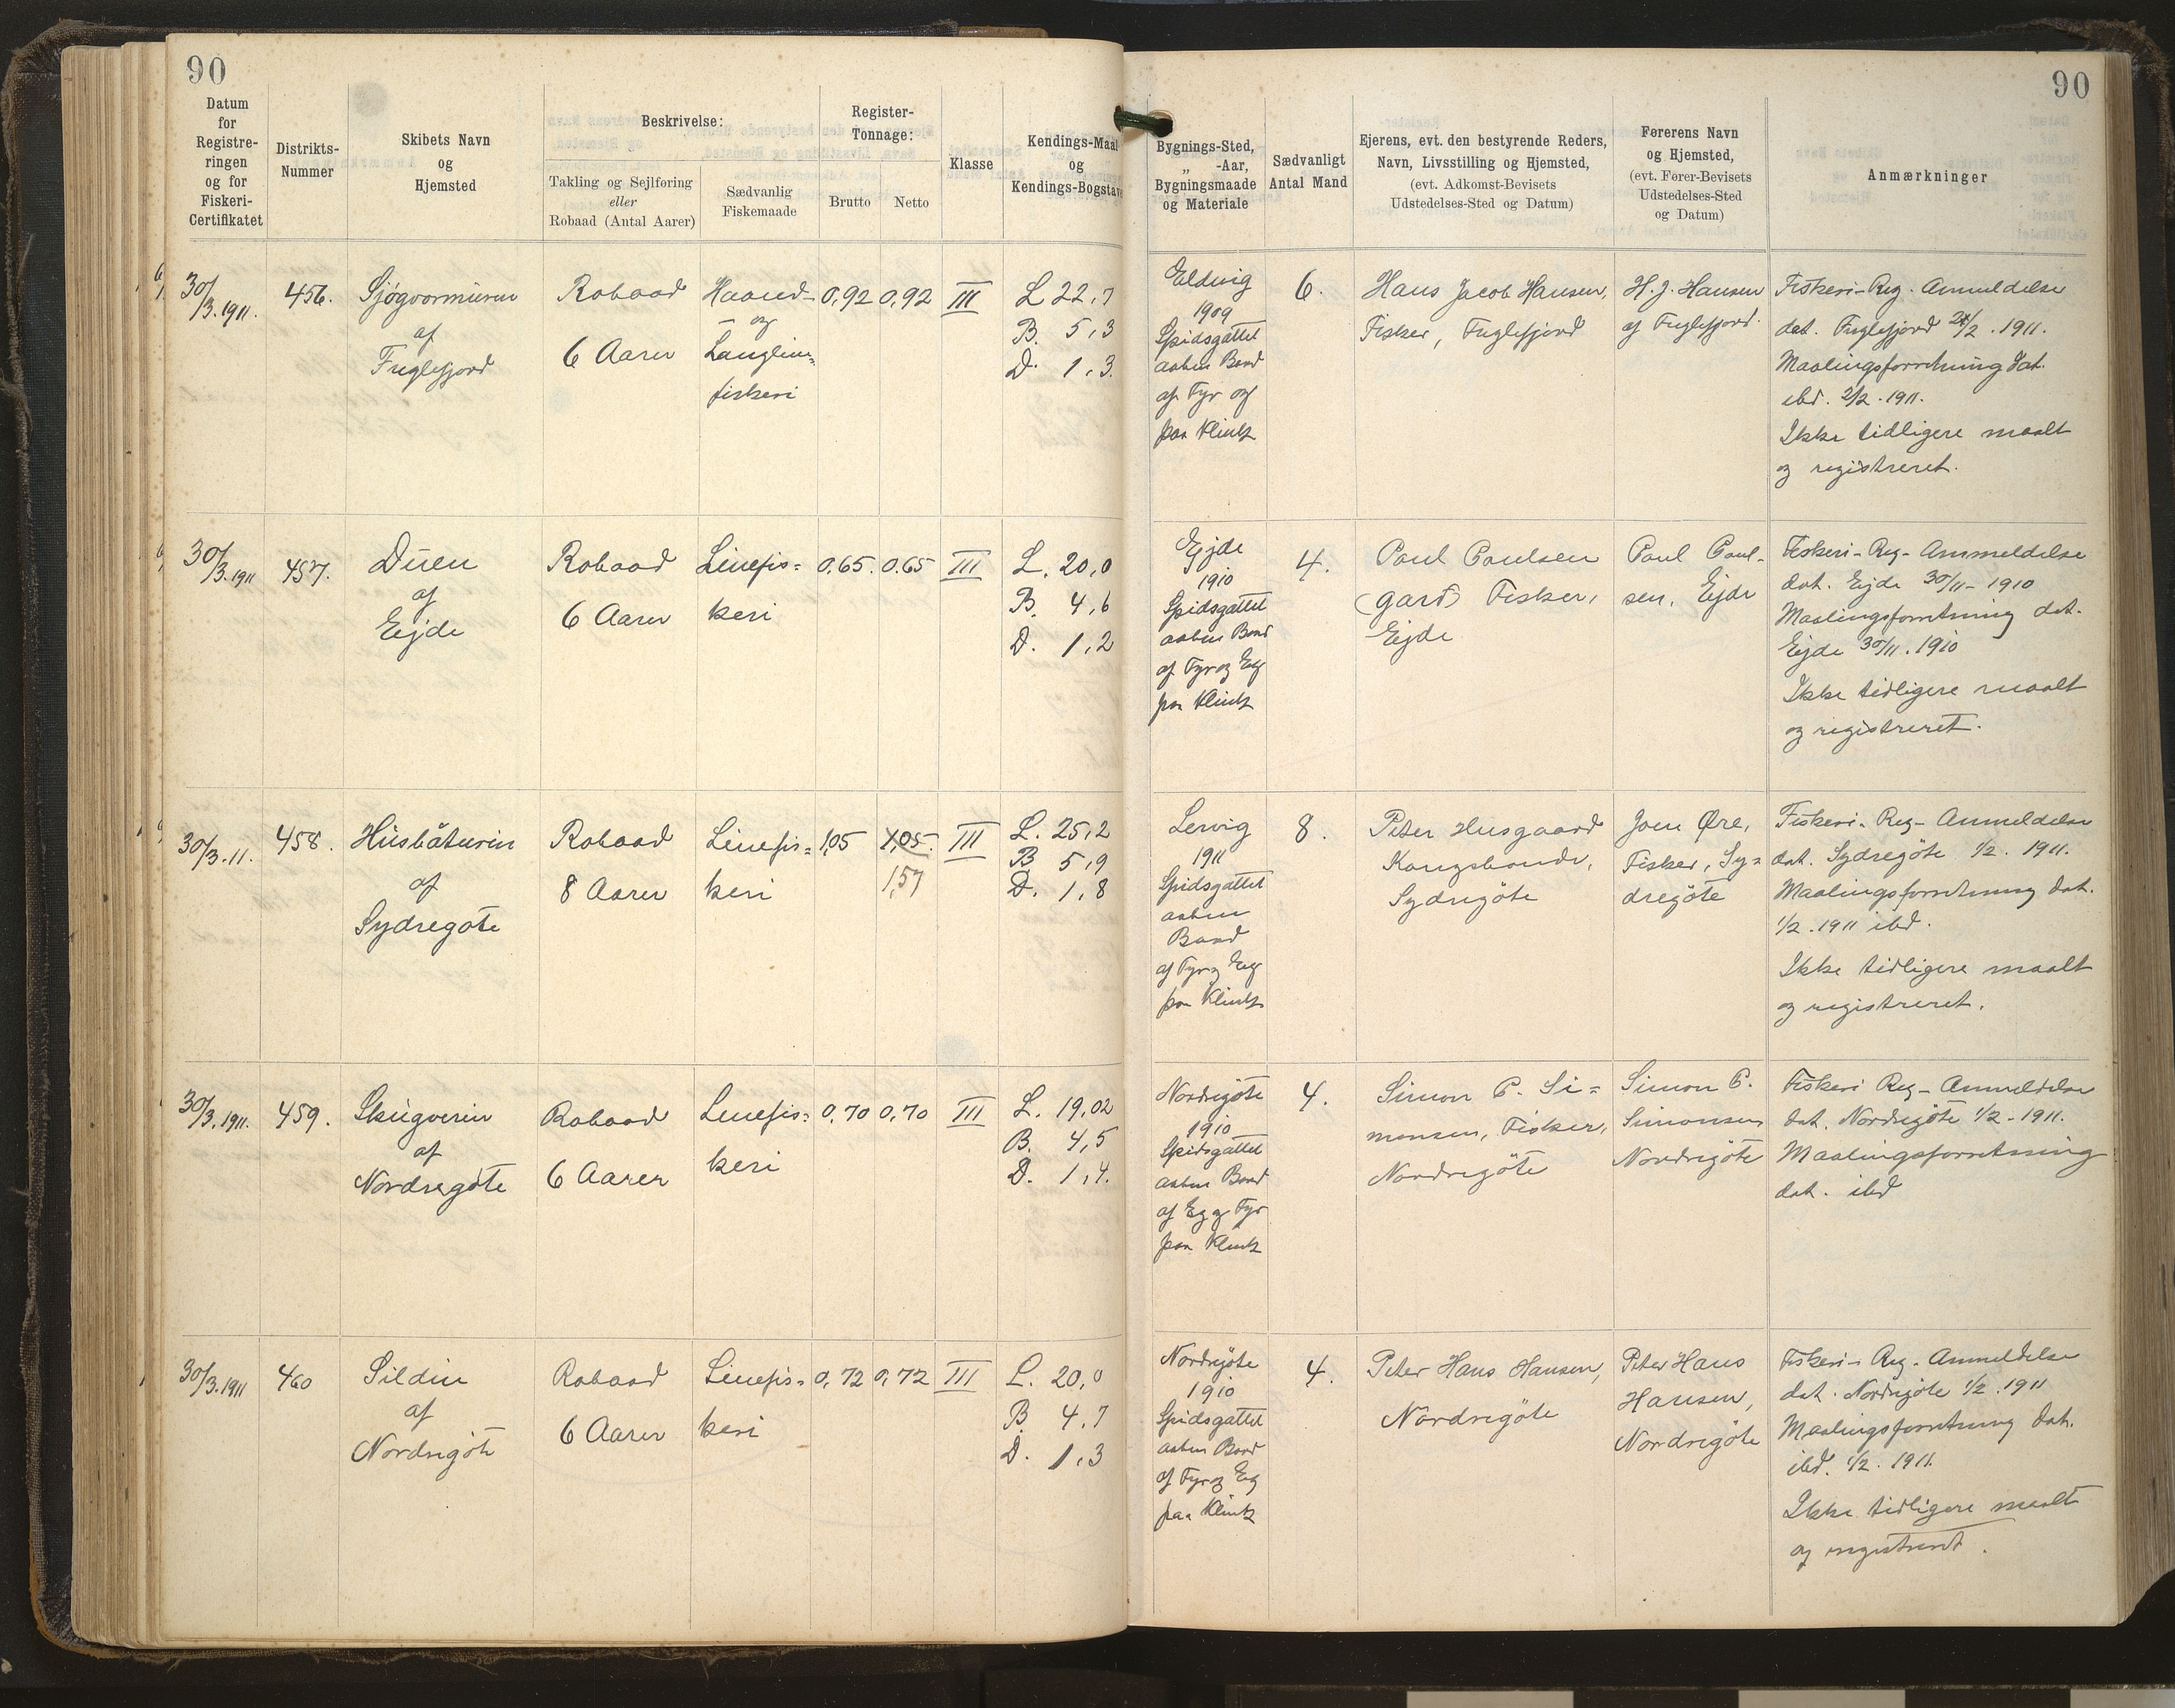 90
90
Datum
for
Registre-
ringen
og for
Fiskeri-
Certifikatet
Distrikts-
Nummer
Skibets Navn
og
Hjemsted
Beskrivelse:
Takling og Sejlføring
eller
Robaad (Antal Aarer)
Sædvanlig
Fiskemaade
Register-
Tonnage:
Brutto
Netto
Klasse
Kendings-Maal
og
Kendings-Bogstaver
Bygnings-Sted,
„ -Aar,
Bygningsmaade
og Materiale
Sædvanligt
Antal Mand
Ejerens, evt. den bestyrende Reders,
Navn, Livsstilling og Hjemsted,
(evt. Adkomst-Bevisets
Udstedelses-Sted og Datum)
Førerens Navn
og Hjemsted,
(evt. Fører-Bevisets
Udstedelses-Sted
og Datum)
Anmærkninger
30/3.1911.
456.
Sjógvormurin
af
Fuglefjord
Robaad
6 Aarer
Haand-
og
Langline=
fiskeri
0,92
0,92
III
L 22,7
B. 5,3
D. 1,3.
Eldvig
1909
Spidsgattet
aaben Baad
af Fyr og
paa Klink
6.
Hans Jacob Hansen,
Fisker, Fuglefjord
H. J. Hansen
af Fuglefjord.
Fiskeri-Reg. Anmeldelse
dat. Fuglefjord 2/2. 1911.
Maalingsforretning dat.
ibd. 2/2. 1911.
Ikke tidligere maalt
og registreret.
30/3.1911
457.
Duen
af
Ejde
Robaad
6 Aarer
Linefis=
keri
0,65.
0,65
III
L. 20,0
B. 4,6
D. 1,2
Ejde
1910
Spidsgattet
aaben Baad
af Fyr og Eg
paa Klink
4.
Poul Poulsen
(gard) Fisker,
Ejde
Poul Poul-
sen, Ejde
Fiskeri-Reg-Anmeldelse
dat. Ejde 30/11-1910
Maalingsforretning dat.
Ejde 30/11. 1910
Ikke tidligere maalt
og registreret.
30/3.11.
458.
Húsbáturin
af
Sydregöte
Robaad
8 Aarer
Linefis=
keri
1,05
1,05.
1,57
III
L. 25,2
B 5,9
D. 1,8
Lervig
1911
Spidsgattet
aaben
Baad
af Fyr og Eg
paa Klink
8.
Peter Husgaard
Kongsbonde,
Sydregöte
Joen Øre,
Fisker, Sy=
dregöte
Fiskeri-Reg-Anmeldelse
dat. Sydregöte 1/2. 1911.
Maalingsforretning dat.
1/2. 1911 ibd.
Ikke tidligere maalt
og registreret.
30/3.1911.
459.
Skúgverin
af
Nordregöte
Robaad
6 Aarer
Linefis=
keri
0,70
0,70
III
L. 19,02
B. 4,5
D. 1,4.
Nordregöte
1910
Spidsgattet
aaben Baad
af Eg og Fyr
paa Klink
4.
Simon P. Si=
monsen, Fisker,
Nordregöte
Simon P.
Simonsen
Nordregöte
Fiskeri Reg-Anmeldelse
dat. Nordregöte 1/2-1911.
Maalingsforretning
dat. ibd
30/3.1911
460
Sildin
af
Nordregöte
Robaad
6 Aarer
Linefis=
keri
0,72
0,72
III
L. 20,0
B 4,7
D. 1,3
Nordregöte
1910
Spidsgattet
aaben Baad
af Fyr og Eg
paa Klink
4.
Peter Hans Hansen,
Nordregöte
Peter Hans
Hansen,
Nordregöte
Fiskeri-Reg. Anmeldelse
dat. Nordregöte 1/2. 1911
Maalingsforretning dat.
ibd. 1/2. 1911.
Ikke tidligere maalt
og registreret.